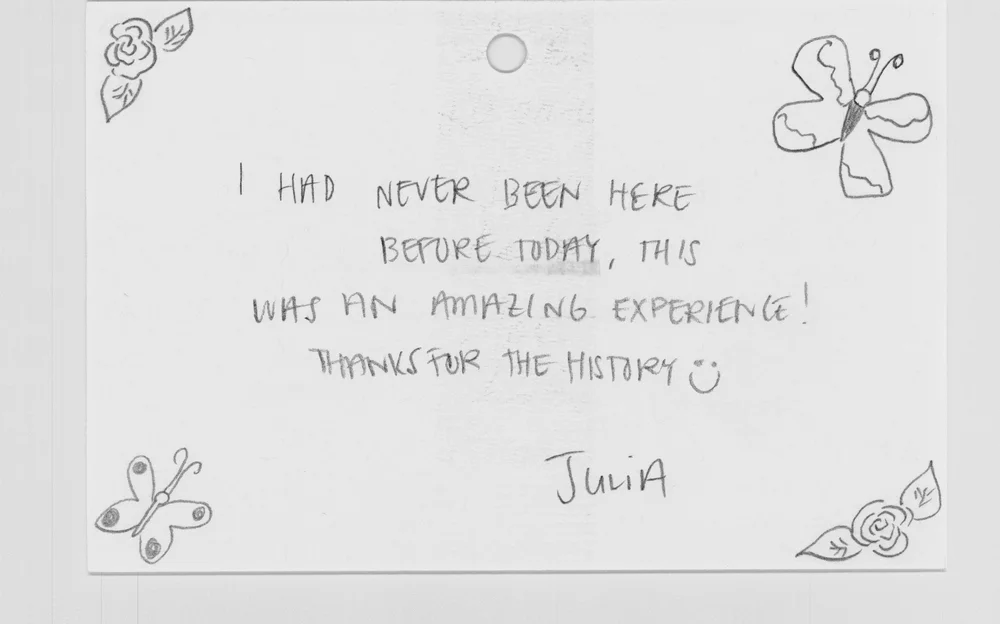 I HAD NEVER BEEN HERE
BEFORE TODAY, THIS
WAS AN AMAZING EXPERIENCE!
THANKS FOR THE HISTORY ☺
JULIA